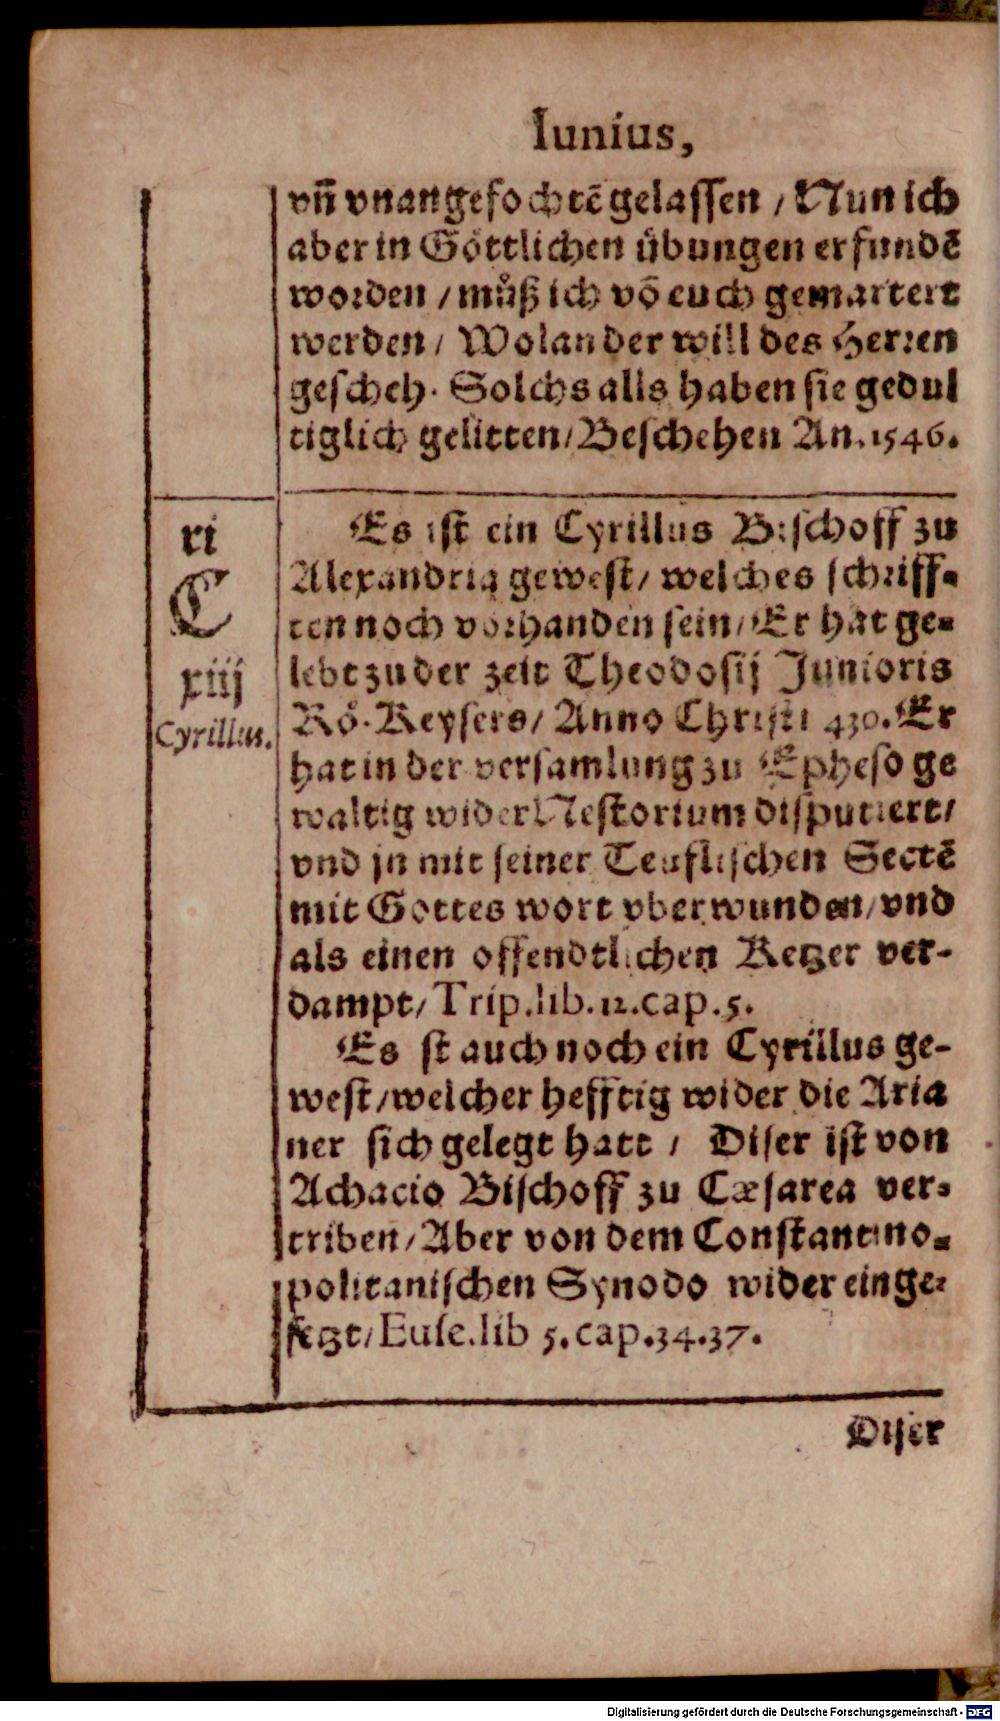 Iunius,
vñ vnangefochtē gelassen / Nun ich
aber in Göttlichen übungen erfundē
worden / můß ich vō euch gemartert
werden / Wolan der will des Herren
gescheh. Solchs alls haben sie gedul
tiglich gelitten / Beschehen An. 1546.
xi
C
xiij
Cyrillus.
Es ist ein Cyrillus Bischoff zu
Alexandria gewest / welches schriff-
ten noch vorhanden sein / Er hat ge-
lebt zu der zeit Theodosij Junioris
Rö. Keysers / Anno Christi 430. Er
hat in der versamlung zu Epheso ge
waltig wider Nestorium disputiert /
vnd jn mit seiner Teuflischen Sectē
mit Gottes wort vberwunden / vnd
als einen offendtlichen Ketzer ver-
dampt / Trip. lib. 12. cap. 5.
Es st auch noch ein Cyrillus ge-
west / welcher hefftig wider die Aria
ner sich gelegt hatt / Diser ist von
Achacio Bischoff zu Cæsarea ver-
triben / Aber von dem Constantino-
politanischen Synodo wider einge-
setzt / Euse. lib 5. cap. 34. 37.
Diser
Digitalisierung gefördert durch die Deutsche Forschungsgemeinschaft - DFG